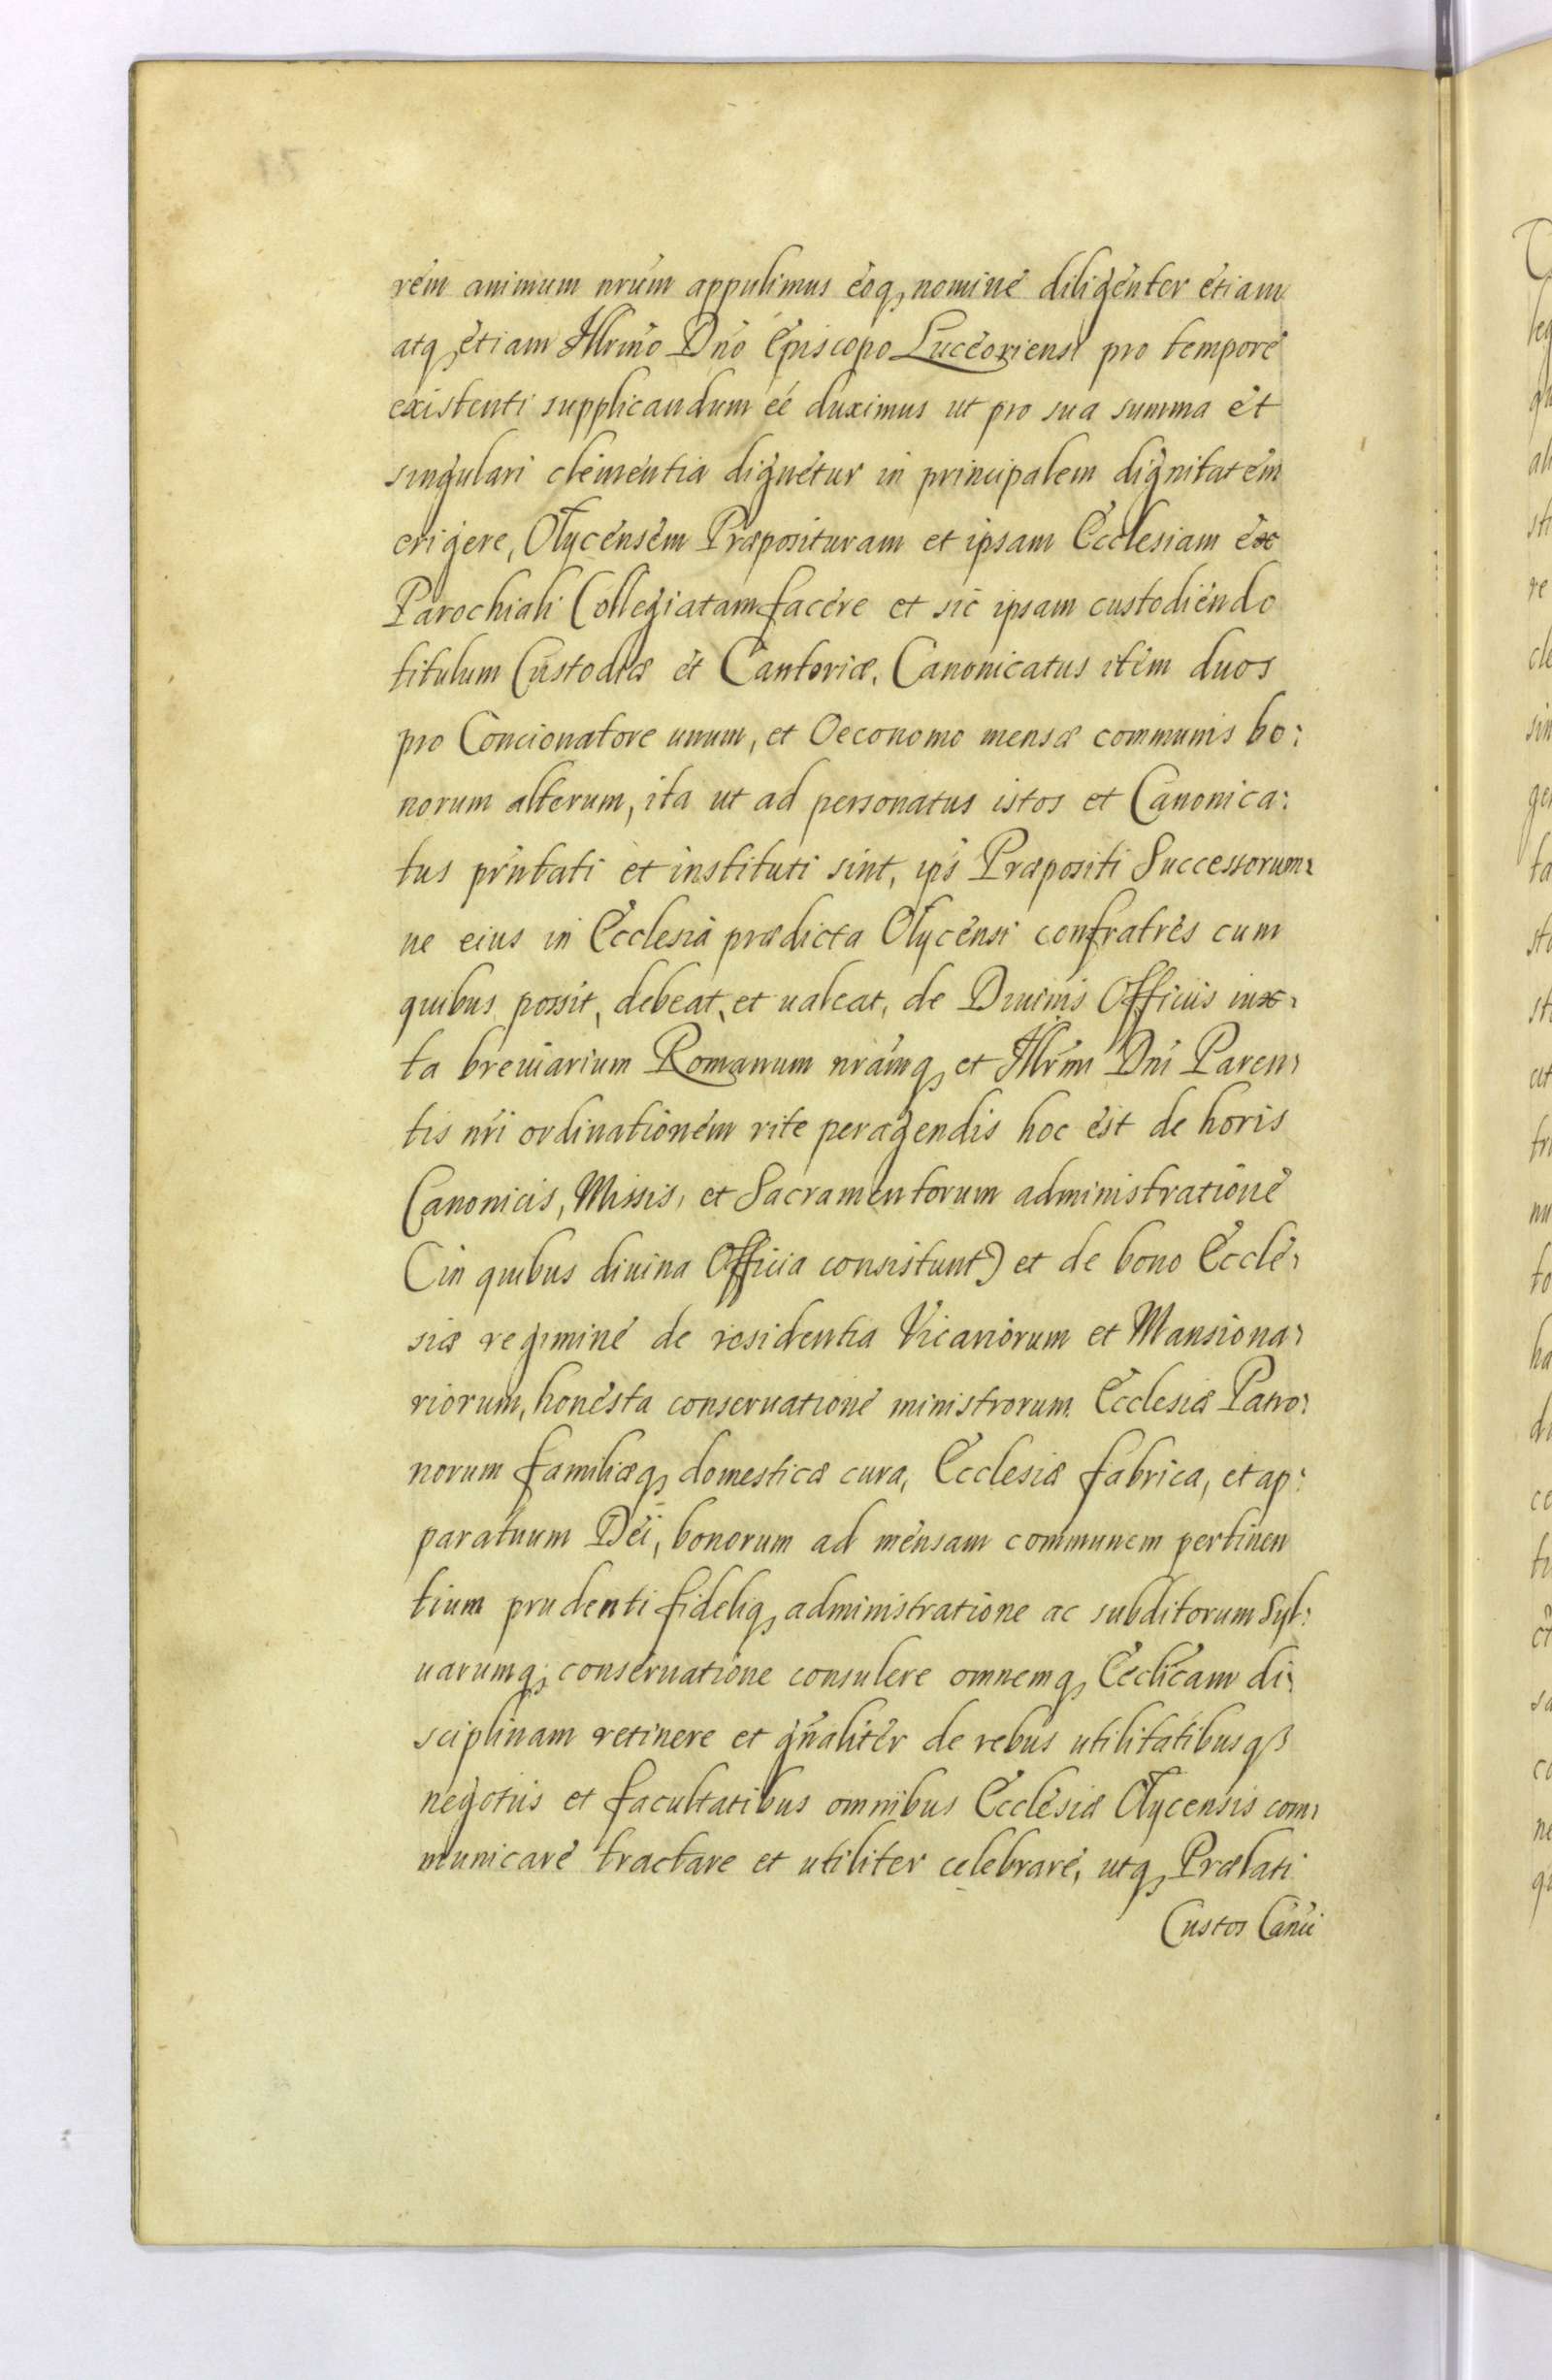 rem animum nrum appulimus eoq, nomine diligenter etiam
atq, etiam Illrmo Dno Episcopo Luceoriensi pro tempore
existenti supplicandum eé duximus ut pro sua summa et
singulari clementia dignetur in principalem dignitatem
erigere, Olycensem Præposituram et ipsam Ecclesiam ex
Parochiali Collegiatam facere et sic ipsam custodiendo
titulum Custodiæ et Cantoriæ, Canonicatus item duos
pro Concionatore unum, et Oeconomo mensæ communis bo:
norum alterum, ita ut ad personatus istos et Canonica:
tus prntati et instituti sint, ipś Præpositi Successorum:
ue eius in Ecclesia prædicta Olycensi confratres cum
quibus possit, debeat, et ualeat, de Diuinis Officiis iux:
ta breuiarium Romanum nramq, et Illrmi Dni Paren:
tis nri ordinationem rite peragendis hoc est de horis
Canonicis, Missis, et Sacramentorum administratione
(in quibus diuina Officia consistunt) et de bono Eccle:
siæ regimine de residentia Vicariorum et Mansiona:
riorum, honesta conseruatione ministrorum Ecclesiæ Patro:
norum familiæq, domesticæ cura, Ecclesiæ fabrica, et ap:
paratuum Dei, bonorum ad mensam communem pertinen
tium prudenti fideliq, administratione ac subditorum Syl:
uarumq; conseruatione consulere omnemq, Ecclicam di:
sciplinam retinere et gnaliter de rebus utilitatibusqз
negotiis et facultatibus omnibus Ecclesiæ Olycensis com:
municare tractare et utiliter celebrare, utq, Prælati
Custos Canci